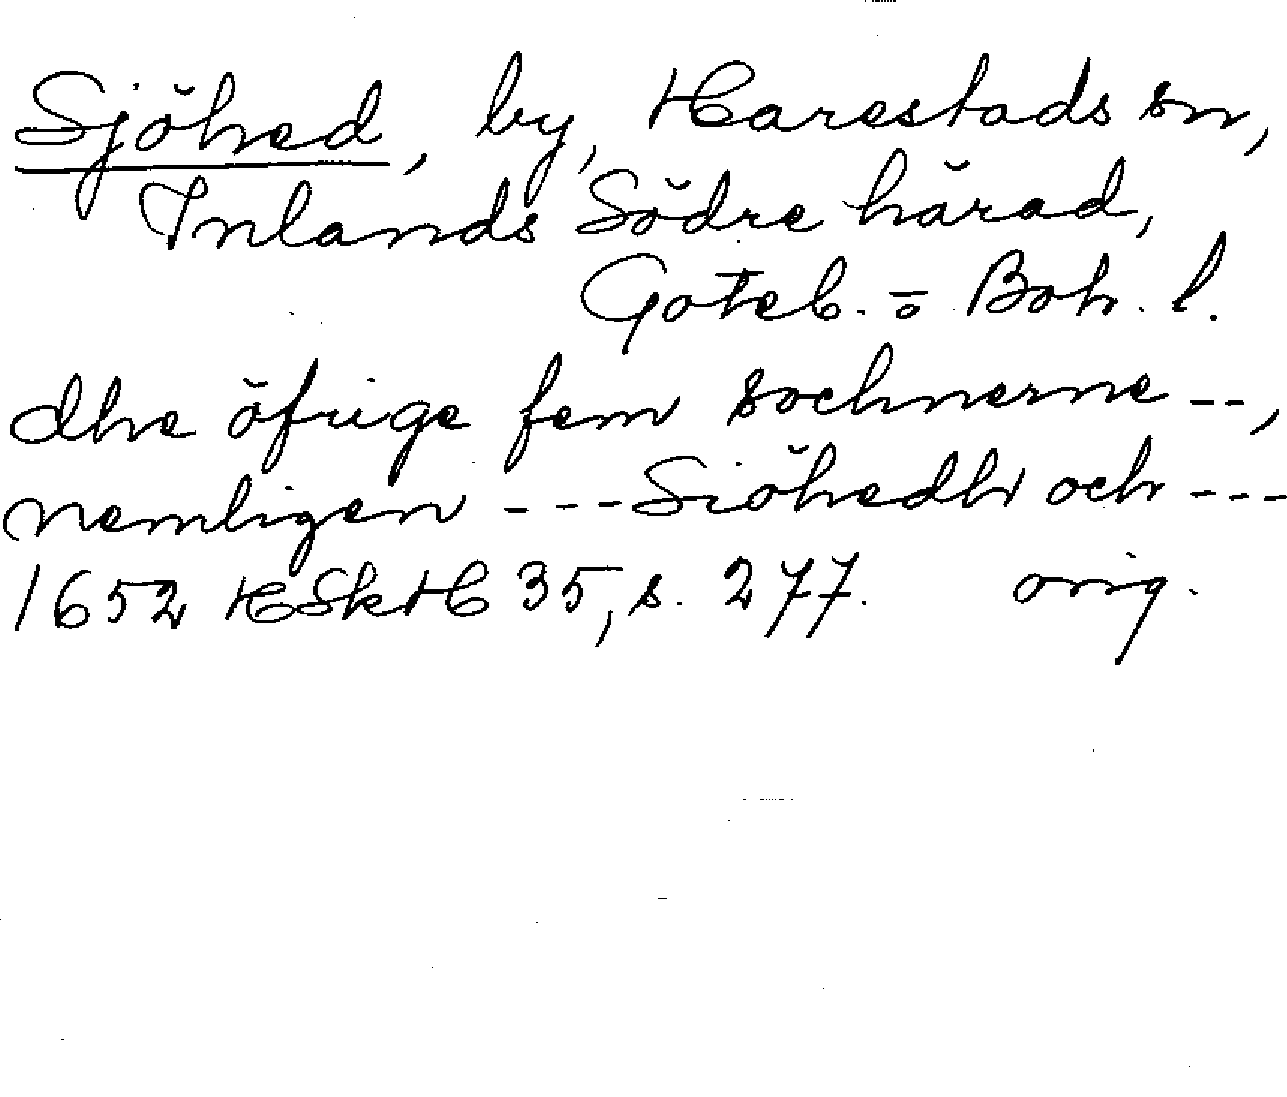 Sjöhed, by, Harestads sn,
Inlands Södre härad,
Göteb. o Boh. l.
dhe öfrige fem sochnerne --,
nemligen --- Siöhedh och ---
1652 HSkH 35, s. 277. orig.